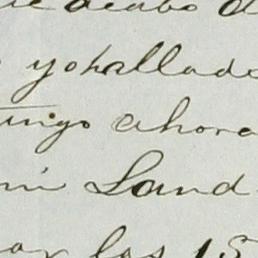 acabo d
yohallado
tingo ahora
mi Land
por los 15